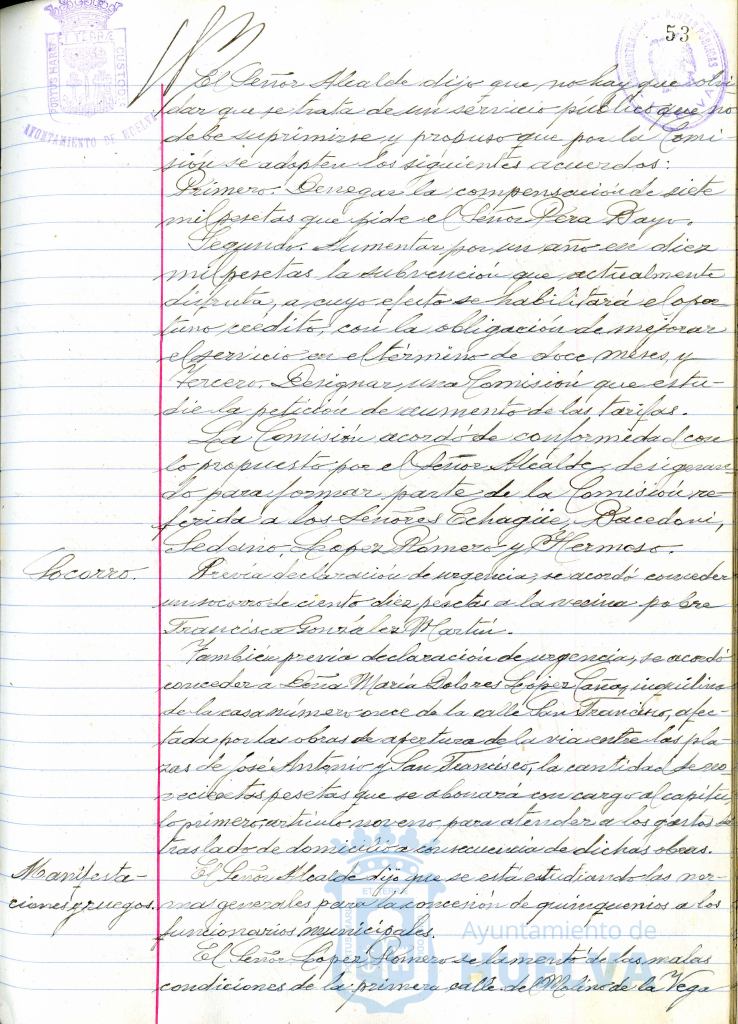 53
PORTUS MARIS
ET TERRÆ
CUSTODIA
AYUNTAMIENTO DE HUELVA
El Señor Alcalde dijo que no hay que olvi-
dar que se trata de un servicio público que no
debe suprimirse y propuso que por la Comi-
sión se adopten los siguientes acuerdos:
Primero. Denegar la compensación de siete
mil pesetas que pide el Señor Pera Bayo.
Segundo. Aumentar por un año en diez
mil pesetas la subvención que actualmente
disfruta, a cuyo efecto se habilitará el opor-
tuno crédito, con la obligación de mejorar
el servicio en el término de doce meses, y
Tercero. Designar una Comisión que estu-
die la petición de aumento de las tarifas.
La Comisión acordó de conformidad con
lo propuesto por el Señor Alcalde, designan-
do para formar parte de la Comisión re-
ferida a los Señores Echagüe, Bacedoni,
Sedeino, Lopez Romero y Hermoso.
Socorro.
Previa declaración de urgencia, se acordó conceder
un socorro de ciento diez pesetas a la vecina pobre
Francisca González Martín.
También previa declaración de urgencia, se acordó
conceder a Doña María Dolores López, inquilina
de la casa número once de la calle San Francisco, afec-
tada por las obras de apertura de la via entre las pla-
zas de José Antonio y San Francisco, la cantidad de no-
vecientas pesetas que se abonará con cargo al capítu-
lo primero, artículo noveno para atender a los gastos de
traslado de domicilio a consecuencia de dichas obras.
Manifesta-
ciones y ruegos.
El Señor Alcalde dijo que se está estudiando las nor-
ma generales para la concesión de quinquenios a los
funcionarios municipales.
El Señor Lopez Romero se lamentó de las malas
condiciones de la primera calle del Molino de la Vega
Ayuntamiento de
HUELVA